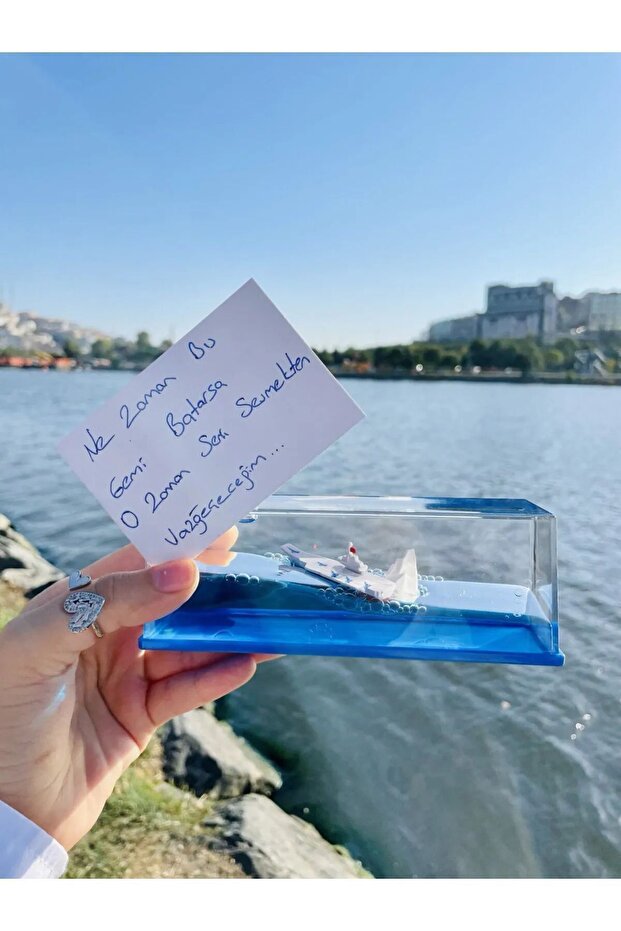 Ne Zaman Bu
Gemi Batarsa
O Zaman Seni Sevmekten
Vazgeçeceğim...